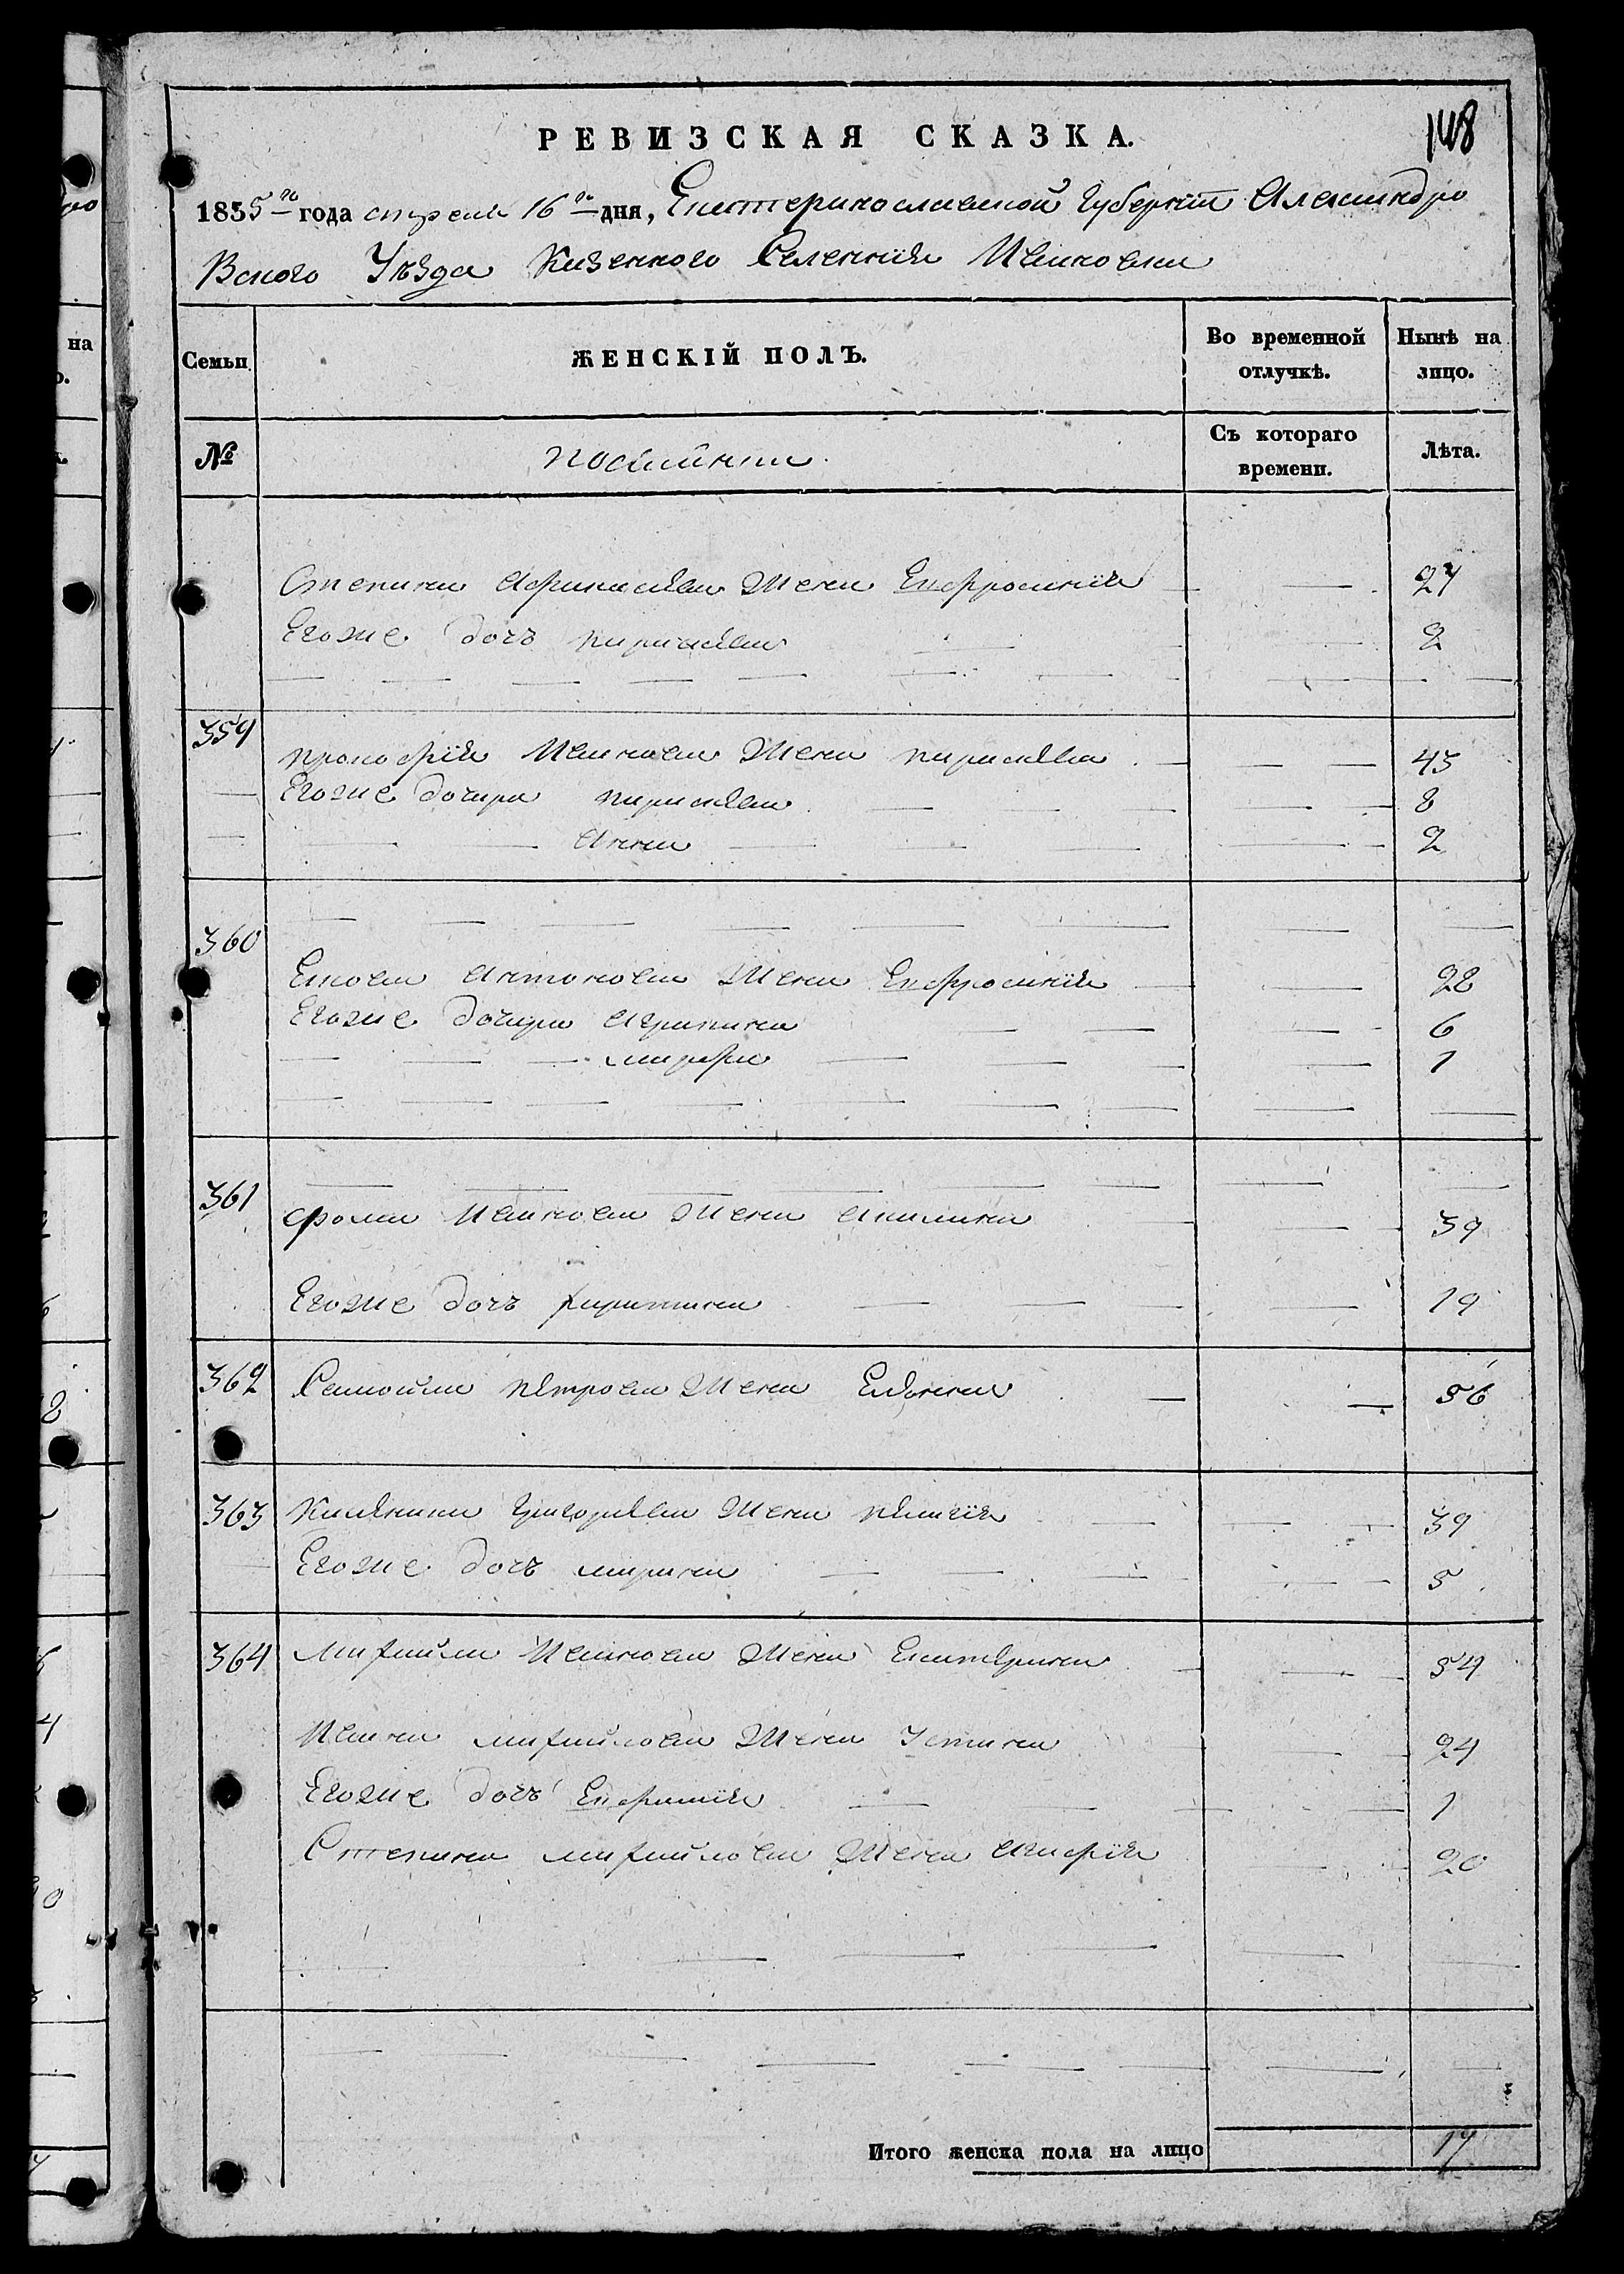 148
РЕВИЗСКАЯ СКАЗКА.
1835 го года апреля 16 го дня, Екатеринославской Губернiи Александро
Вского Уѣзда Казенного Селенiя Ивановки
Семьи
ЖЕНСКІЙ ПОЛЪ.
Во временной отлучкѣ.
Нынѣ на лицо.
№
Съ котораго времени.
Лѣта.
Степана Афанасѣва Жена Ефросинiя 27
Егоже дочъ параскѣва 2
359
прокофiя Иванова Жена параскѣва 45
Егоже дочери параскѣва 8
Анна 2
360
Якова Антонова Жена Ефросинiя 28
Егоже дочери Агрипина 6
марфа 1
361
фома Иванова Жена Акилина 39
Егоже дочъ харитина 19
362 Самойла пѣтрова Жена Евдокия 56
363 Григорѣва Жена пѣлагiя 39
Егоже дочъ марина 5
364 Михайла Иванова Жена Екатѣрина 54
Ивана михайлова Жена Устина 24
Егоже дочъ Ефимiя 1
Степана михайлова Жена Агафiя 20
Итого женска пола на лицо 17